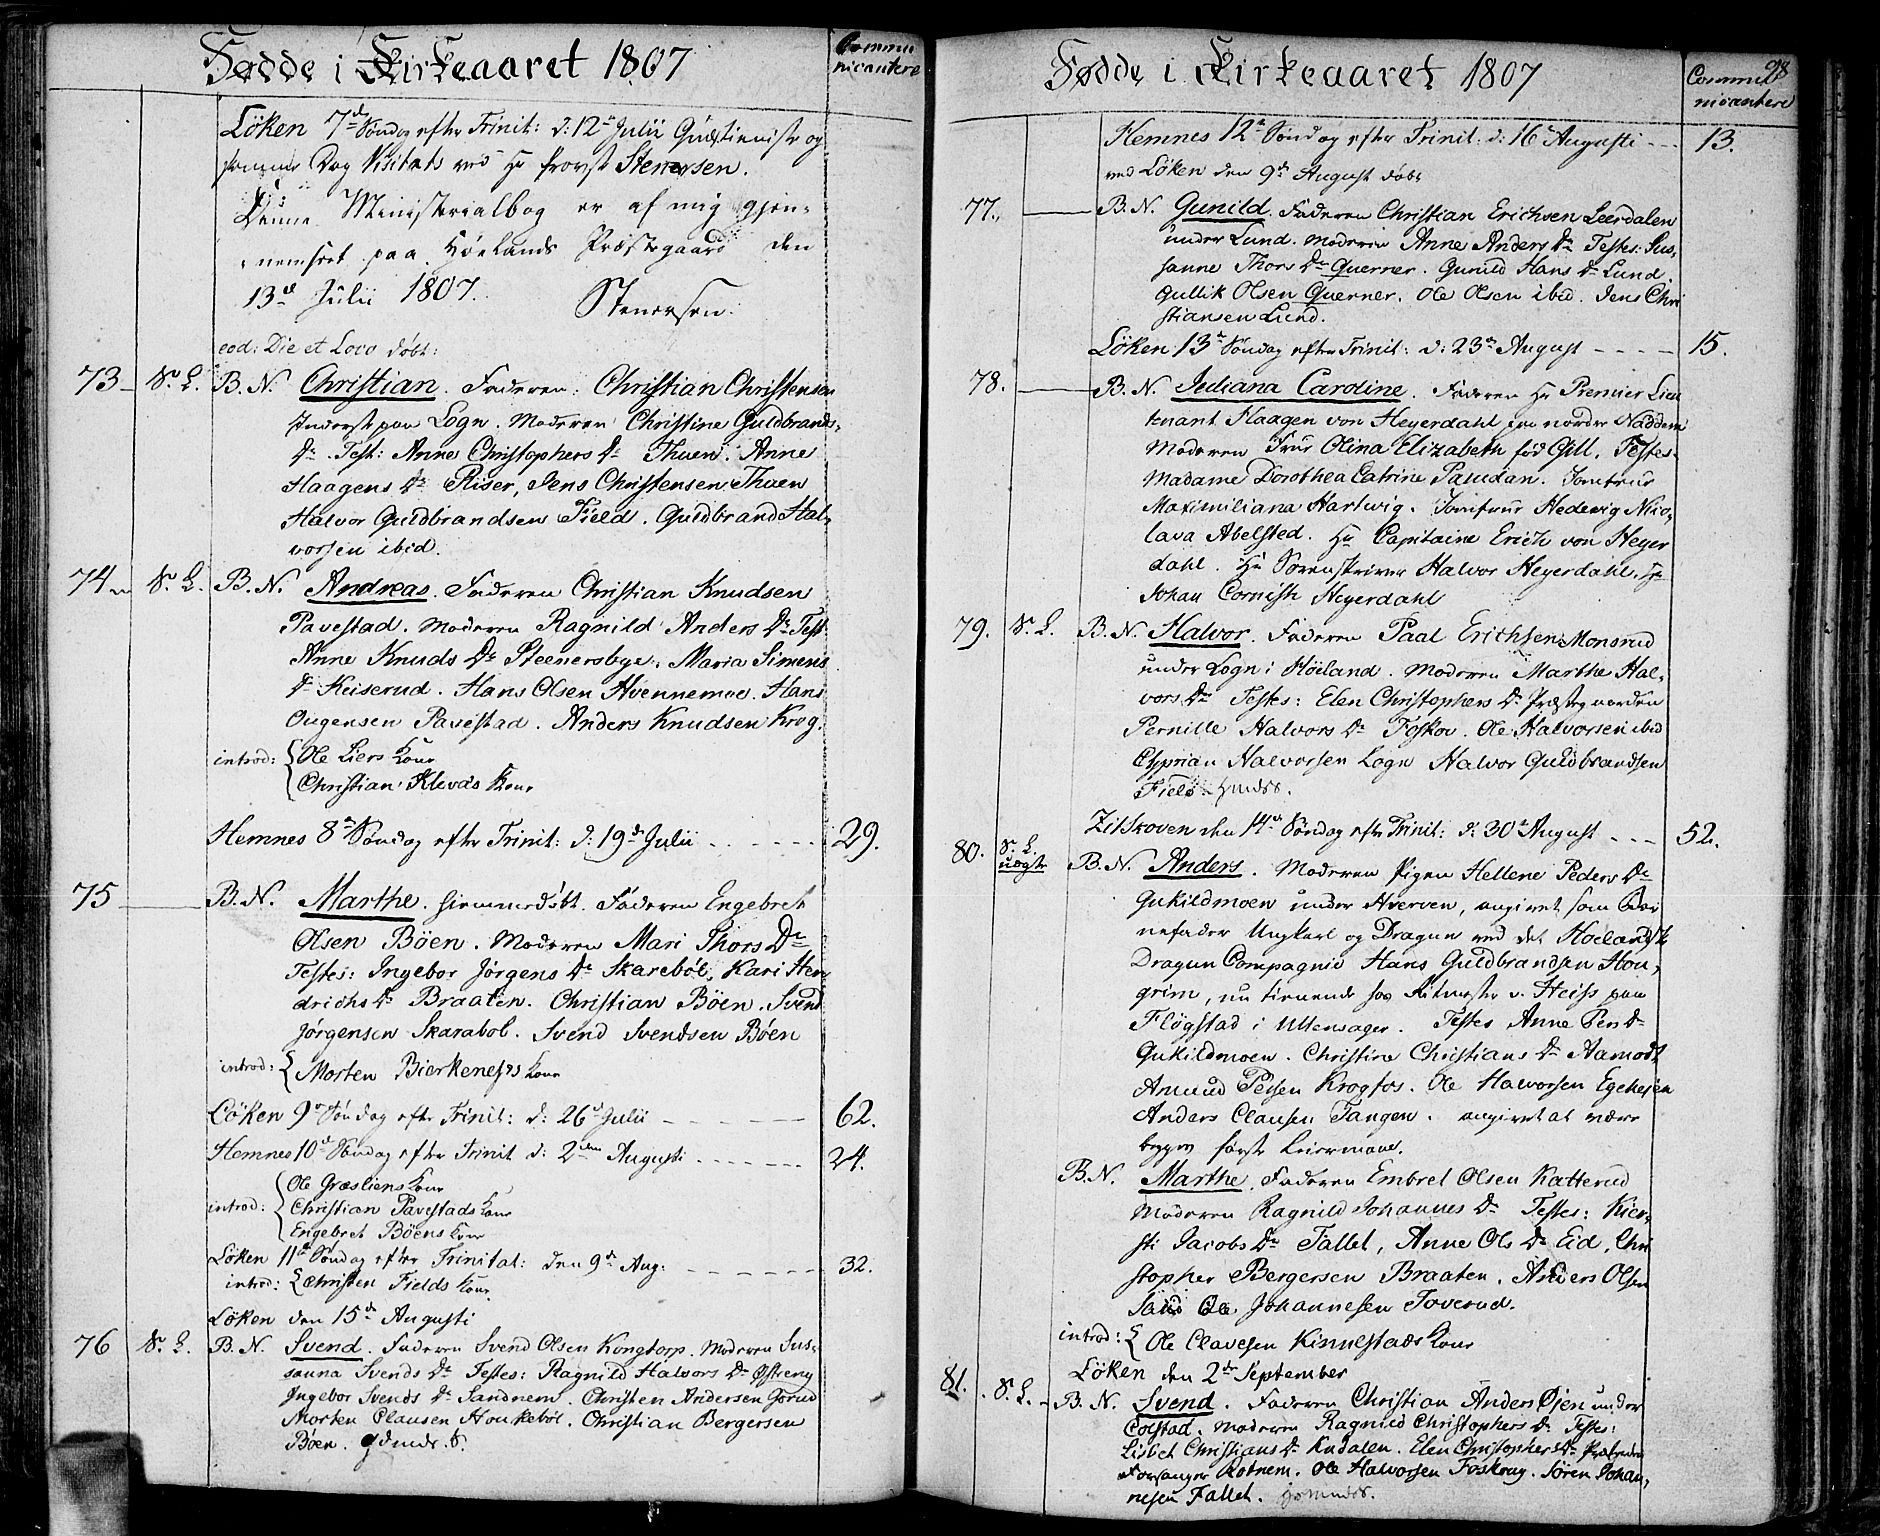 Fødde i Kirkeaaret 1807
Commu
nicantere
Löken 7de Søndag efter Trinit: d: 12te Julii Qvæstioniste og
samme Dag Visitats ved Hr Provst Stenersen.
Denne Ministerialbog er af mig gjen-
nemseet paa Høelands Præstegaard den
13de Julii 1807. Stenersen.
eod: Die et Loco døbt:
73 S. L. B. N. Christian. Faderen: Christian Christensen
Inderst paa Logn. Moderen Christine Guldbrands-
Dr. Test: Anne Christophers Dr Thuen. Anne
Haagens Dr Riser, Jens Christensen Thuen
Halvor Guldbrandsen Field. Guldbrand Hal-
vorsen ibid.
74 S. L. B. N. Andreas. Faderen Christian Knudsen
Pavestad. Moderen Ragnild Anders Dr Test:
Anne Knuds Dr Steenersbye. Maria Simens
Dr Keiserud. Hans Olsen Hvennemoe. Hans
Ougensen Pavestad. Anders Knudsen Krog.
introd: { Ole Liers Kone
Christian Klevas Kone
Hemnes 8de Søndag efter Trinit: d: 19de Julii 29.
75 B. N. Marthe. hiemmedöbt. Faderen Engebret
Olsen Böen. Moderen Mari Thors Dr
Testes: Ingebor Jørgens Dr Skareböl. Kari Hen
drichs Dr Braaten. Christian Böen. Svend
Jörgensen Skaraböl. Svend Svendsen Böen
introd: { Morten Bierkenes's Kone
Löken 9de Søndag efter Trinit: d: 26de Julii 62.
Hemnes 10de Søndag efter Trinit d: 2den Augusti 24.
introd: { Ole Græsliens Kone
Christian Pavestads Kone
Engebret Böens Kone
Löken 11te Søndag efter Trinitat: den 9de Aug: 32.
introd: { Christen Fields Kone
Löken den 15de Augusti
76 S. L. B. N. Svend. Faderen Svend Olsen Kongtorp. Moderen Sus-
sanna Svends Dr Testes: Ragnild Halvors Dr Østreng
Ingebor Svends Dr Sandnem. Christen Andersen Gorud
Morten Clausen Honkeböl. Christian Bergersen
Böen.
Fødde i Kirkeaaret 1807
98
Commu
nicantere
Hemnes 12te Søndag efter Trinit: d: 16de Augusti 13.
ved Löken den 9de August døbt
77. B. N. Gunild. Faderen Christian Erichsen Leerdalen
under Lund. Moderen Anne Anders Dr Testes: Sus-
sanne Thors Dr Querner. Gunild Hans Dr Lund.
Gullik Olsen Querner. Ole Olsen ibid. Jens Chri
stiansen Lund.
Löken 13de Søndag efter Trinit: d: 23de August 15.
78. B. N. Juliana Caroline. Faderen Hr Premier Lieu
tenant Haagen von Heyerdahl paa nordre Naddem
Moderen Frue Olina Elizabeth fød Gill. Testes
Madame Dorothea Catrine Paludan. Jomfrue
Maximiliana Hartwig. Jomfrue Hedevig Nico-
lava Abelsted. Hr Capitaine Erich von Heyer
dahl. Hr Sorenskriver Halvor Heyerdahl. Hr
Johan Cornish Heyerdahl
79. S. L. B. N. Halvor. Faderen Paal Erichsen Monsrud
under Logn i Höeland. Moderen Marthe Hal-
vors Dr Testes: Elen Christophers Dr Præstegaarden
Pernille Halvors Dr Foskov. Ole Halvorsen ibid
Cyprian Halvorsen Logn Halvor Guldbrandsen
Field
Zitskoven den 14de Søndag efter Trinit: d: 30te August 52.
80. S. L. uægte B. N. Anders. Moderen Pigen Hellene Peders Dr
Gukildmoen under Hverven, angivet som Bar
nefader Ungkarl og Dragun ved det Hoelandske
Dragun Compagnie Hans Guldbrandsen Hou-
grim, nu tienende hos Ritmester v. Heiss paa
Fløgstad i Ullensager. Testes Anne Pers Dr
Gukildmoen. Christine Christians Dr Aamodt
Amund Persen Krogfos. Ole Halvorsen Egebesen
Anders Clausen Tangen. angivet at være
begges første Leiermaal.
B. N. Marthe. Faderen Embret Olsen Katterud
Moderen Ragnild Johannes Dr Testes: Kier-
sti Jacobs Dr Fallet, Anne Ols Dr Eid, Chri
stopher Bergersen Braaten. Anders Olsen
Ole Johannesen Toverud.
introd: { Ole Clavesen Kinnestads Kone
Löken den 2den September
81. S. L. B. N. Svend. Faderen Christian Anders Öjen under
Colstad. Moderen Ragnild Christophers Dr Testes:
Lisbet Christians Dr Kudalen. Elen Christophers Dr
Forsanger Rotnem. Ole Halvorsen Foskoug. Sören Johan-
nesen Fallet.